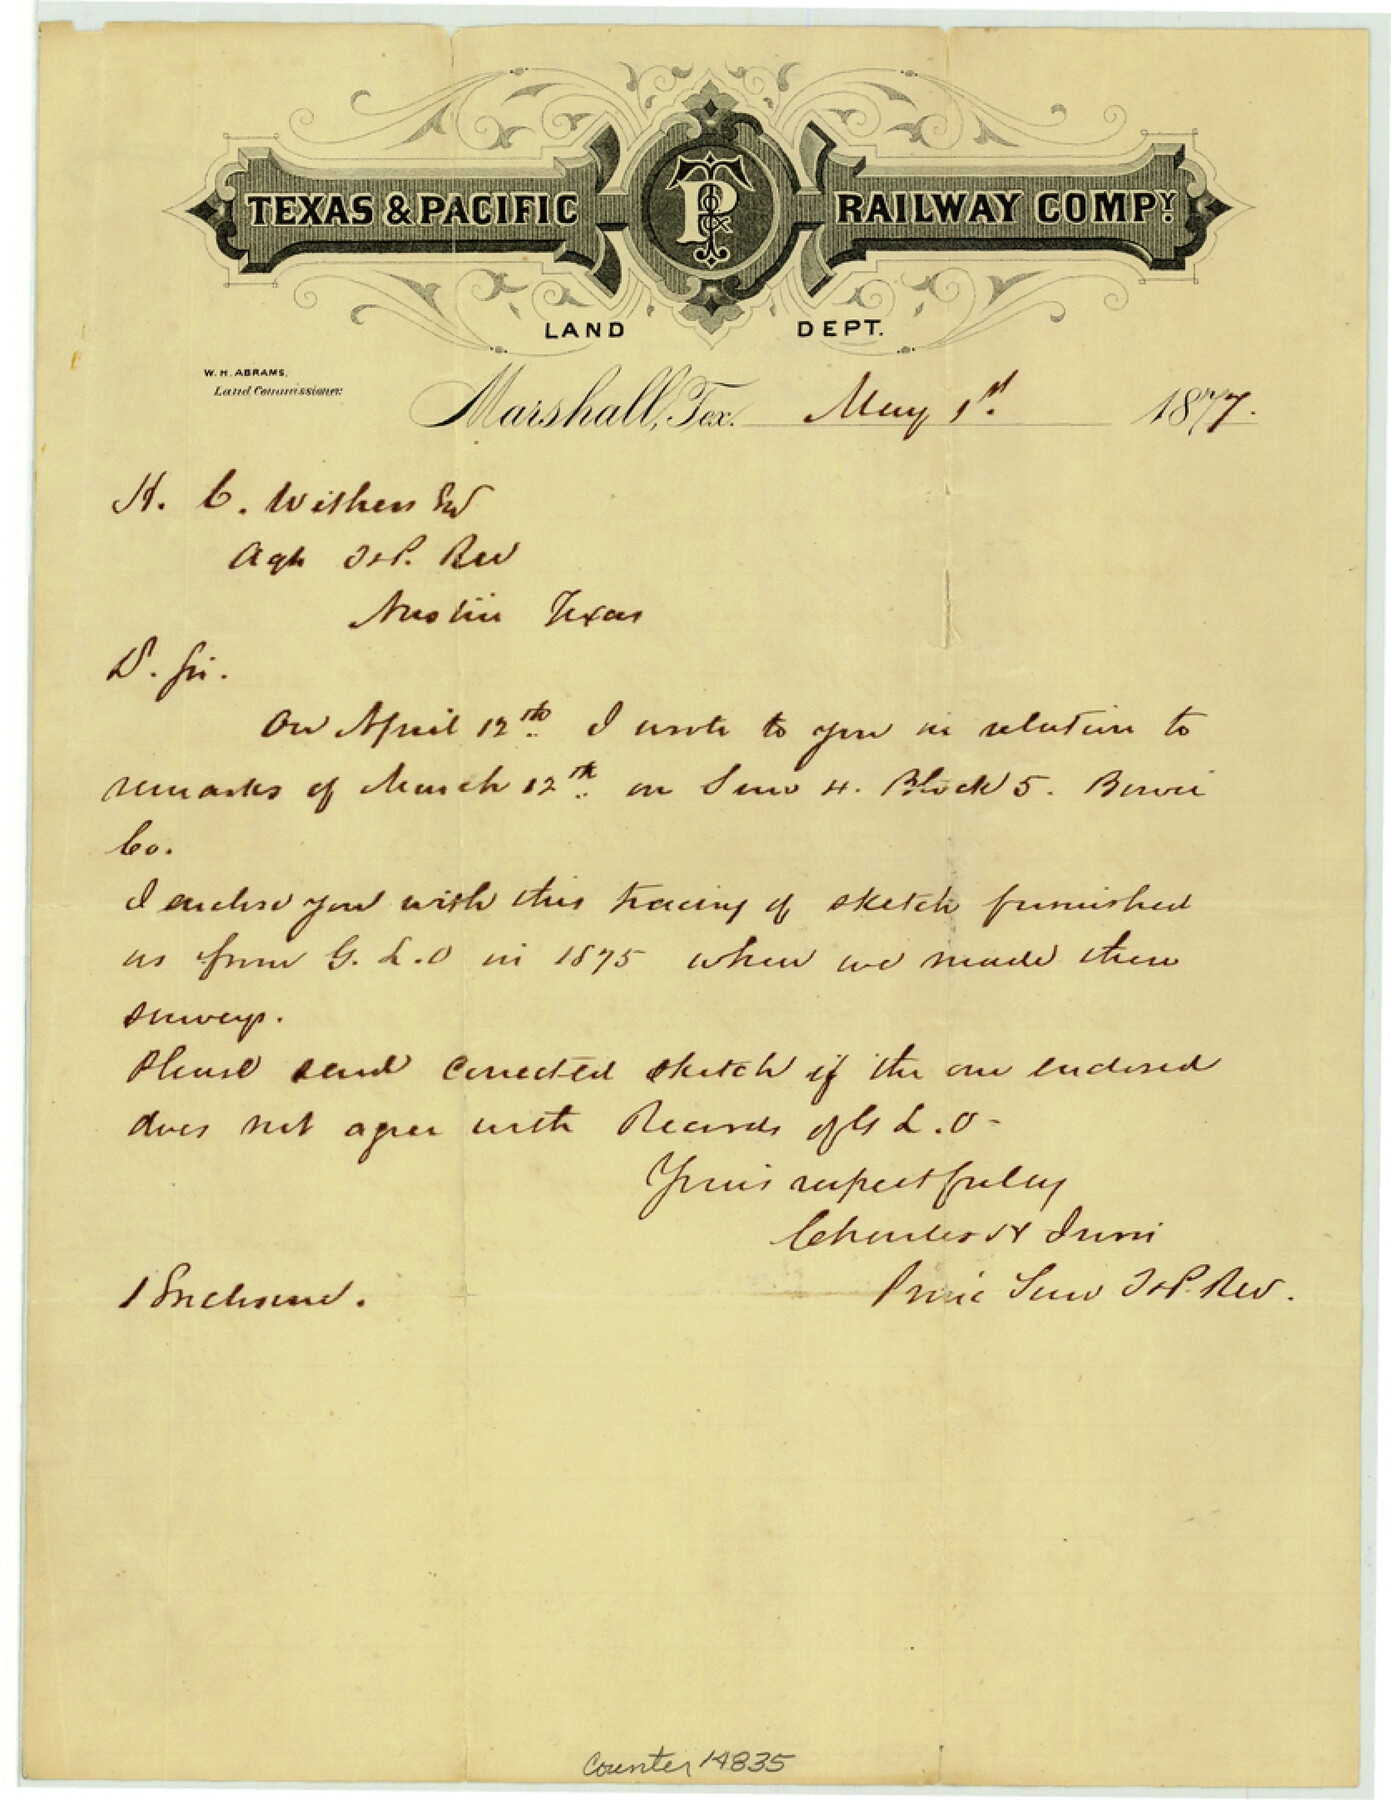 TEXAS & PACIFIC T&P RAILWAY COMPY.
LAND DEPT.
W. H. ABRAMS,
Land Commissioner.
Marshall, Tex. May 1st. 1877.
H. C. Withers Esq
Agt T&P. Rw
Austin Texas
D. Sir.
On April 12th. I wrote to you in relation to
remarks of March 12th. on Surv 4. Block 5. Bowie
Co.
I enclose you with this tracing of sketch furnished
us from G. L. O in 1875 when we made these
surveys.
Please send corrected sketch if the one enclosed
does not agree with Records of G L. O-
Yours respectfully
Charles H
Princ Surv T&P. Rw.
1 Enclosure.
Counter 14835